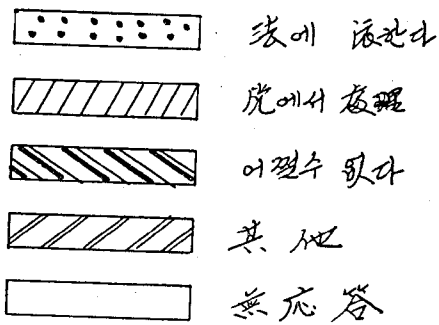 法에 依한다
院에서 處理
어쩔수 없다
其他
無応答